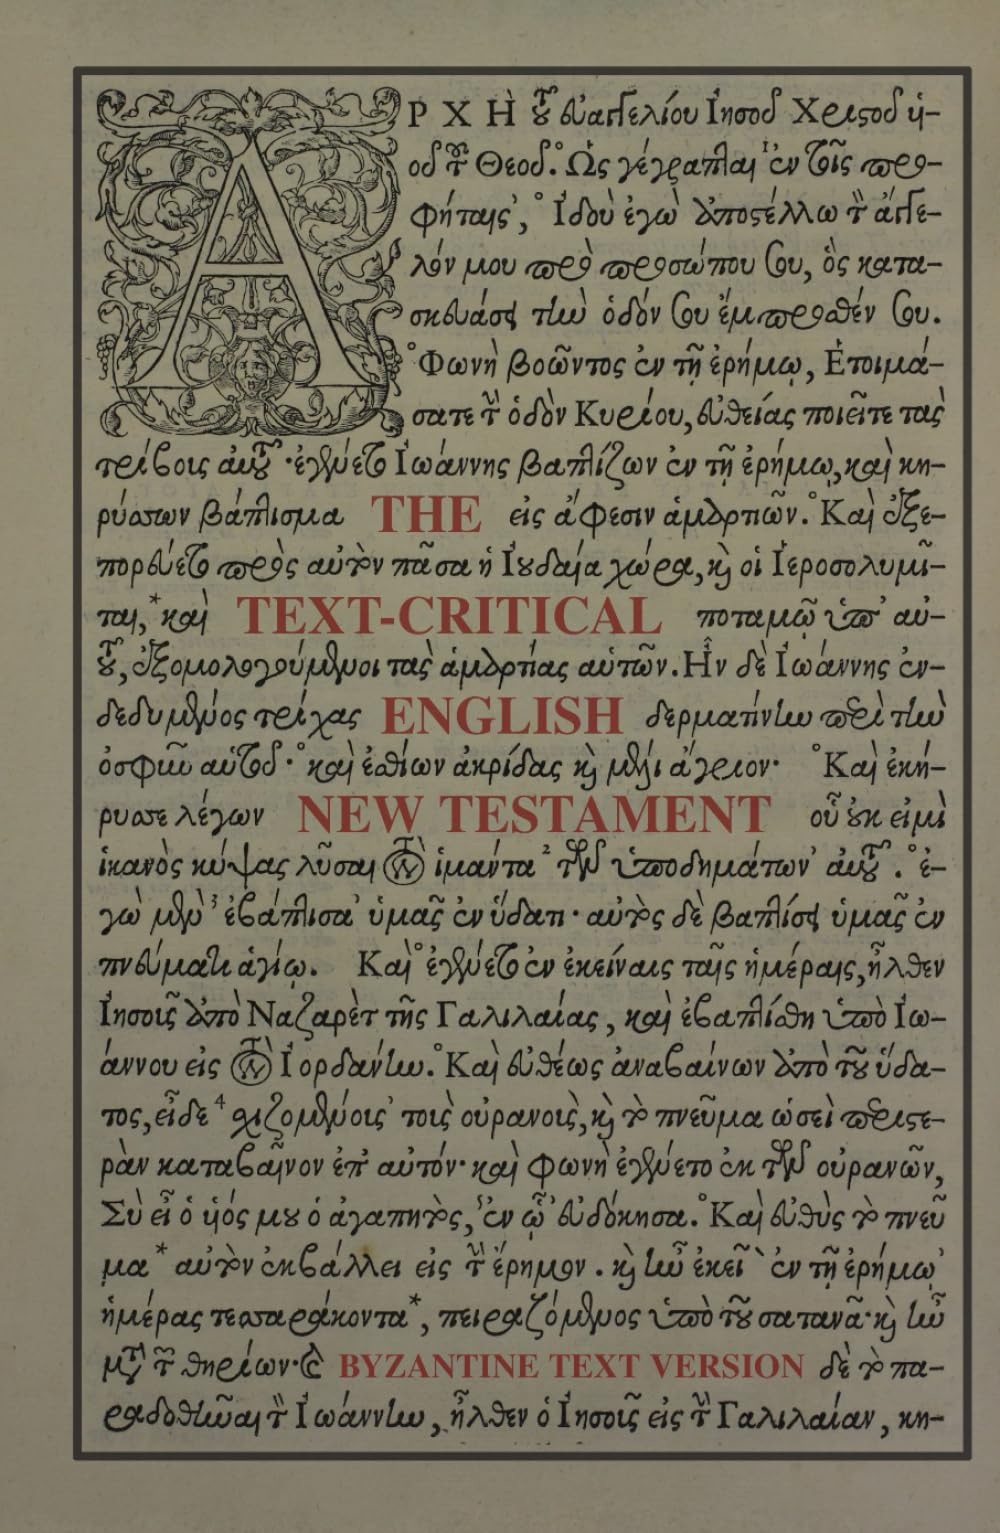 ΑΡΧῊ τοῦ εὐαγγελίου Ἰησοῦ Χριστοῦ ὑι-
οῦ τοῦ Θεοῦ. °Ὡς γέγραπται ¹ἐν τοῖς προ-
φήταις', °Ἰδοὺ ἐγὼ ἀποστέλλω τὸν ἄγγε-
λόν μου πρὸ προσώπου σου, ὃς κατα-
σκευάσει τὴν ὁδόν σου ἔμπροσθέν σου.
°Φωνὴ βοῶντος ἐν τῇ ἐρήμῳ, Ἑτοιμά-
σατε τὴν ὁδὸν Κυρίου, εὐθείας ποιεῖτε τὰς
τρίβους αὐτοῦ· ἐγένετο Ἰωάννης βαπτίζων ἐν τῇ ἐρήμῳ, καὶ κη-
ρύσσων βάπτισμα THE εἰς ἄφεσιν ἁμαρτιῶν. °Καὶ ἐξε-
πορεύετο πρὸς αὐτὸν πᾶσα ἡ Ἰουδαία χώρα, καὶ οἱ Ἱεροσολυμῖ-
ται,* καὶ TEXT-CRITICAL ποταμῷ ὑπ' αὐ-
τοῦ, ἐξομολογούμενοι τὰς ἁμαρτίας αὐτῶν. Ἦν δὲ Ἰωάννης ἐν-
δεδυμένος τρίχας ENGLISH δερματίνην περὶ τὴν
ὀσφὺν αὐτοῦ· °καὶ ἐσθίων ἀκρίδας καὶ μέλι ἄγριον· °Καὶ ἐκή-
ρυσσε λέγων NEW TESTAMENT οὗ οὐκ εἰμὶ
ἱκανὸς κύψας λῦσαι τὸν ἱμάντα ²τῶν ὑποδημάτων' αὐτοῦ. °ἐ-
γὼ μὲν ³ἐβάπτισα' ὑμᾶς ἐν ὕδατι· αὐτὸς δὲ βαπτίσει ὑμᾶς ἐν
πνεύματι ἁγίῳ. Καὶ °ἐγένετο ἐν ἐκείναις ταῖς ἡμέραις, ἦλθεν
Ἰησοῦς ἀπὸ Ναζαρὲτ τῆς Γαλιλαίας, καὶ ἐβαπτίσθη ὑπὸ Ἰω-
άννου εἰς τὸν Ἰορδάνην. °Καὶ εὐθέως ἀναβαίνων ἀπὸ τοῦ ὕδα-
τος, εἶδε ⁴σχιζομένους' τοὺς οὐρανοὺς, καὶ τὸ πνεῦμα ὡσεὶ περιστε-
ρὰν καταβαῖνον ἐπ' αὐτόν· καὶ φωνὴ ἐγένετο ἐκ τῶν οὐρανῶν,
Σὺ εἶ ὁ ὑιός μου ὁ ἀγαπητὸς, ⁵ἐν ᾧ' εὐδόκησα. °Καὶ εὐθὺς τὸ πνεῦ
μα* αὐτὸν ἐκβάλλει εἰς τὴν ἔρημον. καὶ ἦν ἐκεῖ `ἐν τῇ ἐρήμῳ'
ἡμέρας τεσσαράκοντα*, πειραζόμενος ὑπὸ τοῦ σατανᾶ· καὶ ἦν
μετὰ τῶν θηρίων· BYZANTINE TEXT VERSION δὲ τὸ πα-
ραδοθῆναι τὸν Ἰωάννην, ἦλθεν ὁ Ἰησοῦς εἰς τὴν Γαλιλαίαν, κη-